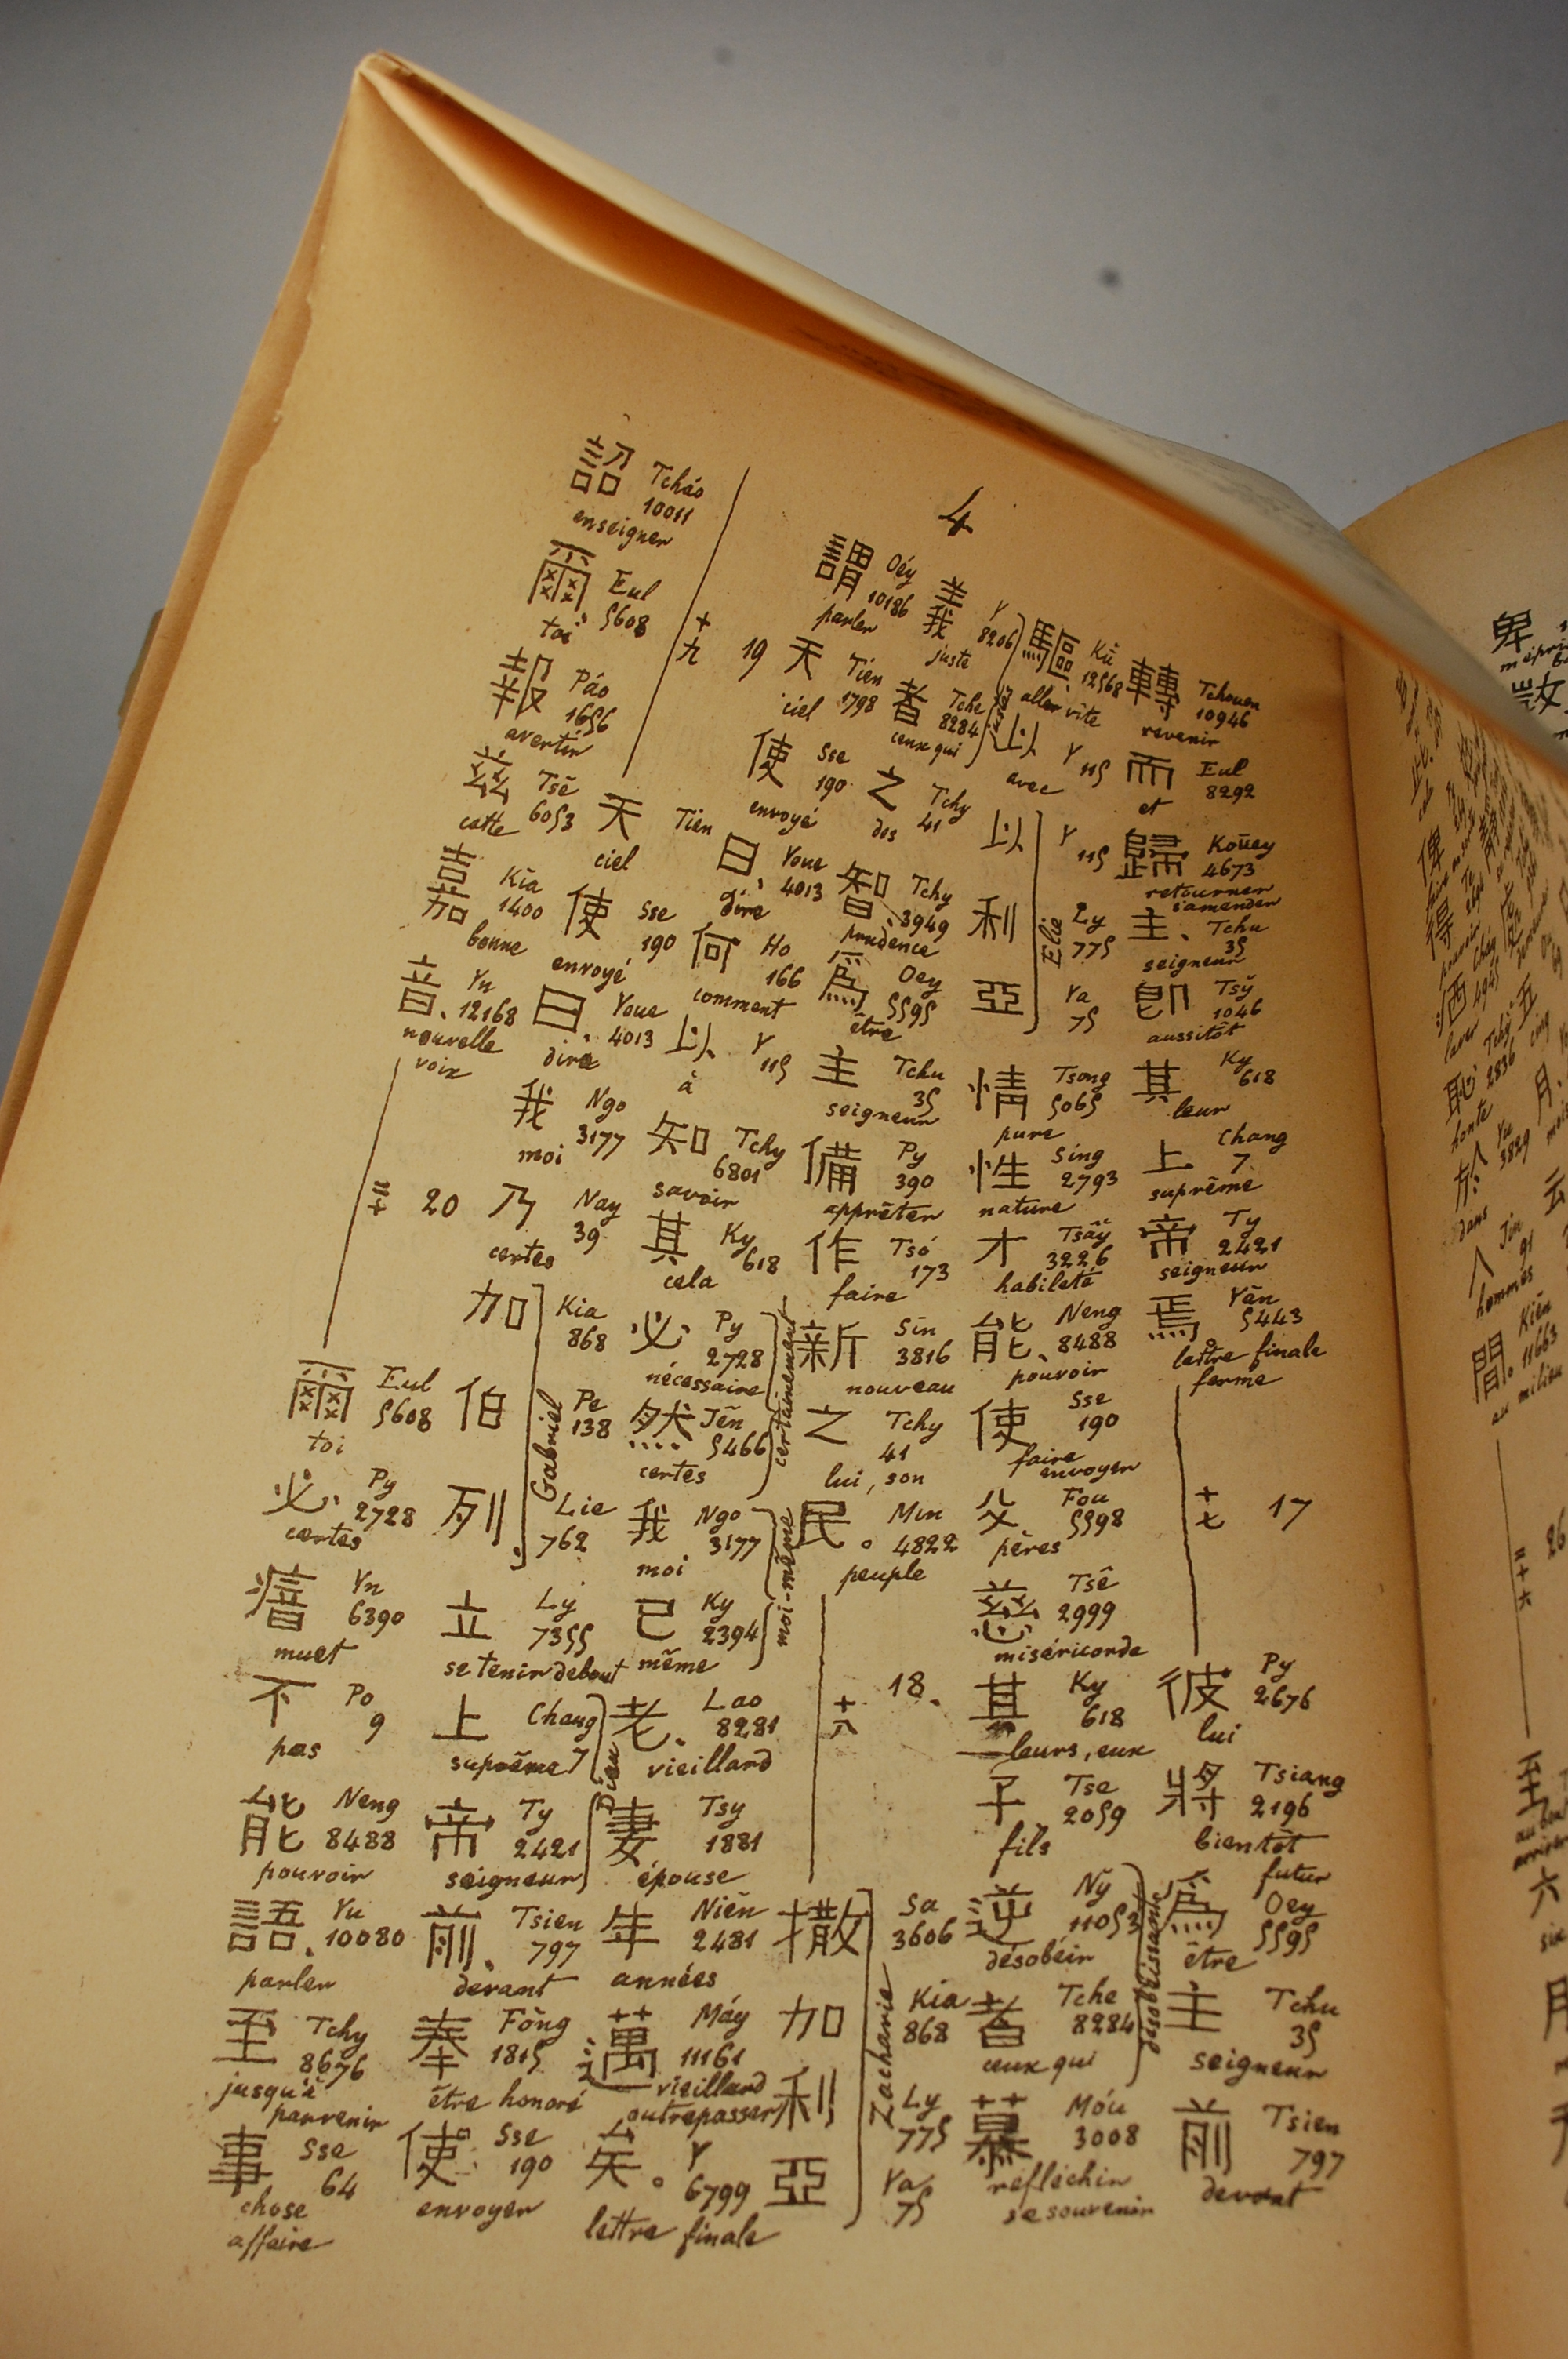 4
轉 Tchouen
10946
revenir
而 Eul
8292
et
歸 Kouey
4673
retourner
s'amender
主、 Tchu
35
seigneur
卽 Tsÿ
1046
aussitôt
其 Ky
618
leur
上 Chang
7
suprême
帝 Ty
2421
seigneur
焉。 Yēn
5443
lettre finale
ferme
十七 17
彼 Py
2676
lui
將 Tsiang
2196
bientôt
futur
爲 Oey
5595
être
主 Tchu
35
seigneur
前 Tsien
797
devant
驅 Kū
12568
aller vite
以 Y
115
avec
以 Y
115
利 Ly
775
亞 Ya
75
Elie
情 Tsong
5065
pure
性 Sing
2793
nature
才 Tsäy
3226
habileté
能、 Neng
8488
pouvoir
使 Sse
190
faire
envoyer
父 Fou
5598
pères
慈 Tsē
2999
miséricorde
其 Ky
618
leurs, eux
子 Tse
2059
fils
逆 Ny
11053
désobéir
者 Tche
8284
ceux qui
désobéissant
慕 Móu
3008
réfléchir
se souvenir
義 Y
8206
juste
者 Tche
8284
ceux qui
之 Tchy
41
des
智、 Tchy
3949
prudence
爲 Oey
5595
être
主 Tchu
35
seigneur
備 Py
390
apprêter
作 Tsó
173
faire
新 Sin
3816
nouveau
之 Tchy
41
lui, son
民。 Min
4822
peuple
十八 18.
撒 Sa
3606
加 Kia
868
利 Ly
775
亞 Ya
75
Zacharie
謂 Oéy
10186
parler
天 Tien
1798
ciel
使 Sse
190
envoyé
曰、 Youe
4013
dire
何 Ho
166
comment
以 Y
115
à
知 Tchy
6801
savoir
其 Ky
618
cela
必 Py
2728
nécessaire
然 Jēn
5466
certes
certainement
我 Ngo
3177
moi
已 Ky
2394
même
moi-même
老、 Lao
8281
vieillard
妻 Tsy
1881
épouse
年 Niēn
2481
années
邁 Máy
11161
vieillard
outrepasser
矣。 Y
6799
lettre finale
十九 19
天 Tien
ciel
使 Sse
190
envoyé
曰、 Youe
4013
dire
我 Ngo
3177
moi
乃 Nay
39
certes
加 Kia
868
伯 Pe
138
列、 Lie
762
Gabriel
立 Ly
7355
se tenir debout
上 Chang
7
suprême
帝 Ty
2421
seigneur
Dieu
前、 Tsien
797
devant
奉 Fōng
1815
être honoré
使 Sse
190
envoyer
詔 Tcháo
10011
enseigner
爾 Eul
5608
toi
報 Páo
1656
avertir
茲 Tsē
6053
cette
嘉 Kia
1400
bonne
音、 Yn
12168
nouvelle
voix
二十 20
爾 Eul
5608
toi
必 Py
2728
certes
瘖 Yn
6390
muet
不 Po
9
pas
能 Neng
8488
pouvoir
語、 Yu
10080
parler
至 Tchy
8676
jusqu'à
parvenir
事 Sse
64
chose
affaire
俾
得
洒
laver
恥
honte
於 Yu
3829
dans
人 Jin
91
hommes
間。 Kiēn
11663
au milieu
二十六 26
至
六
six
月